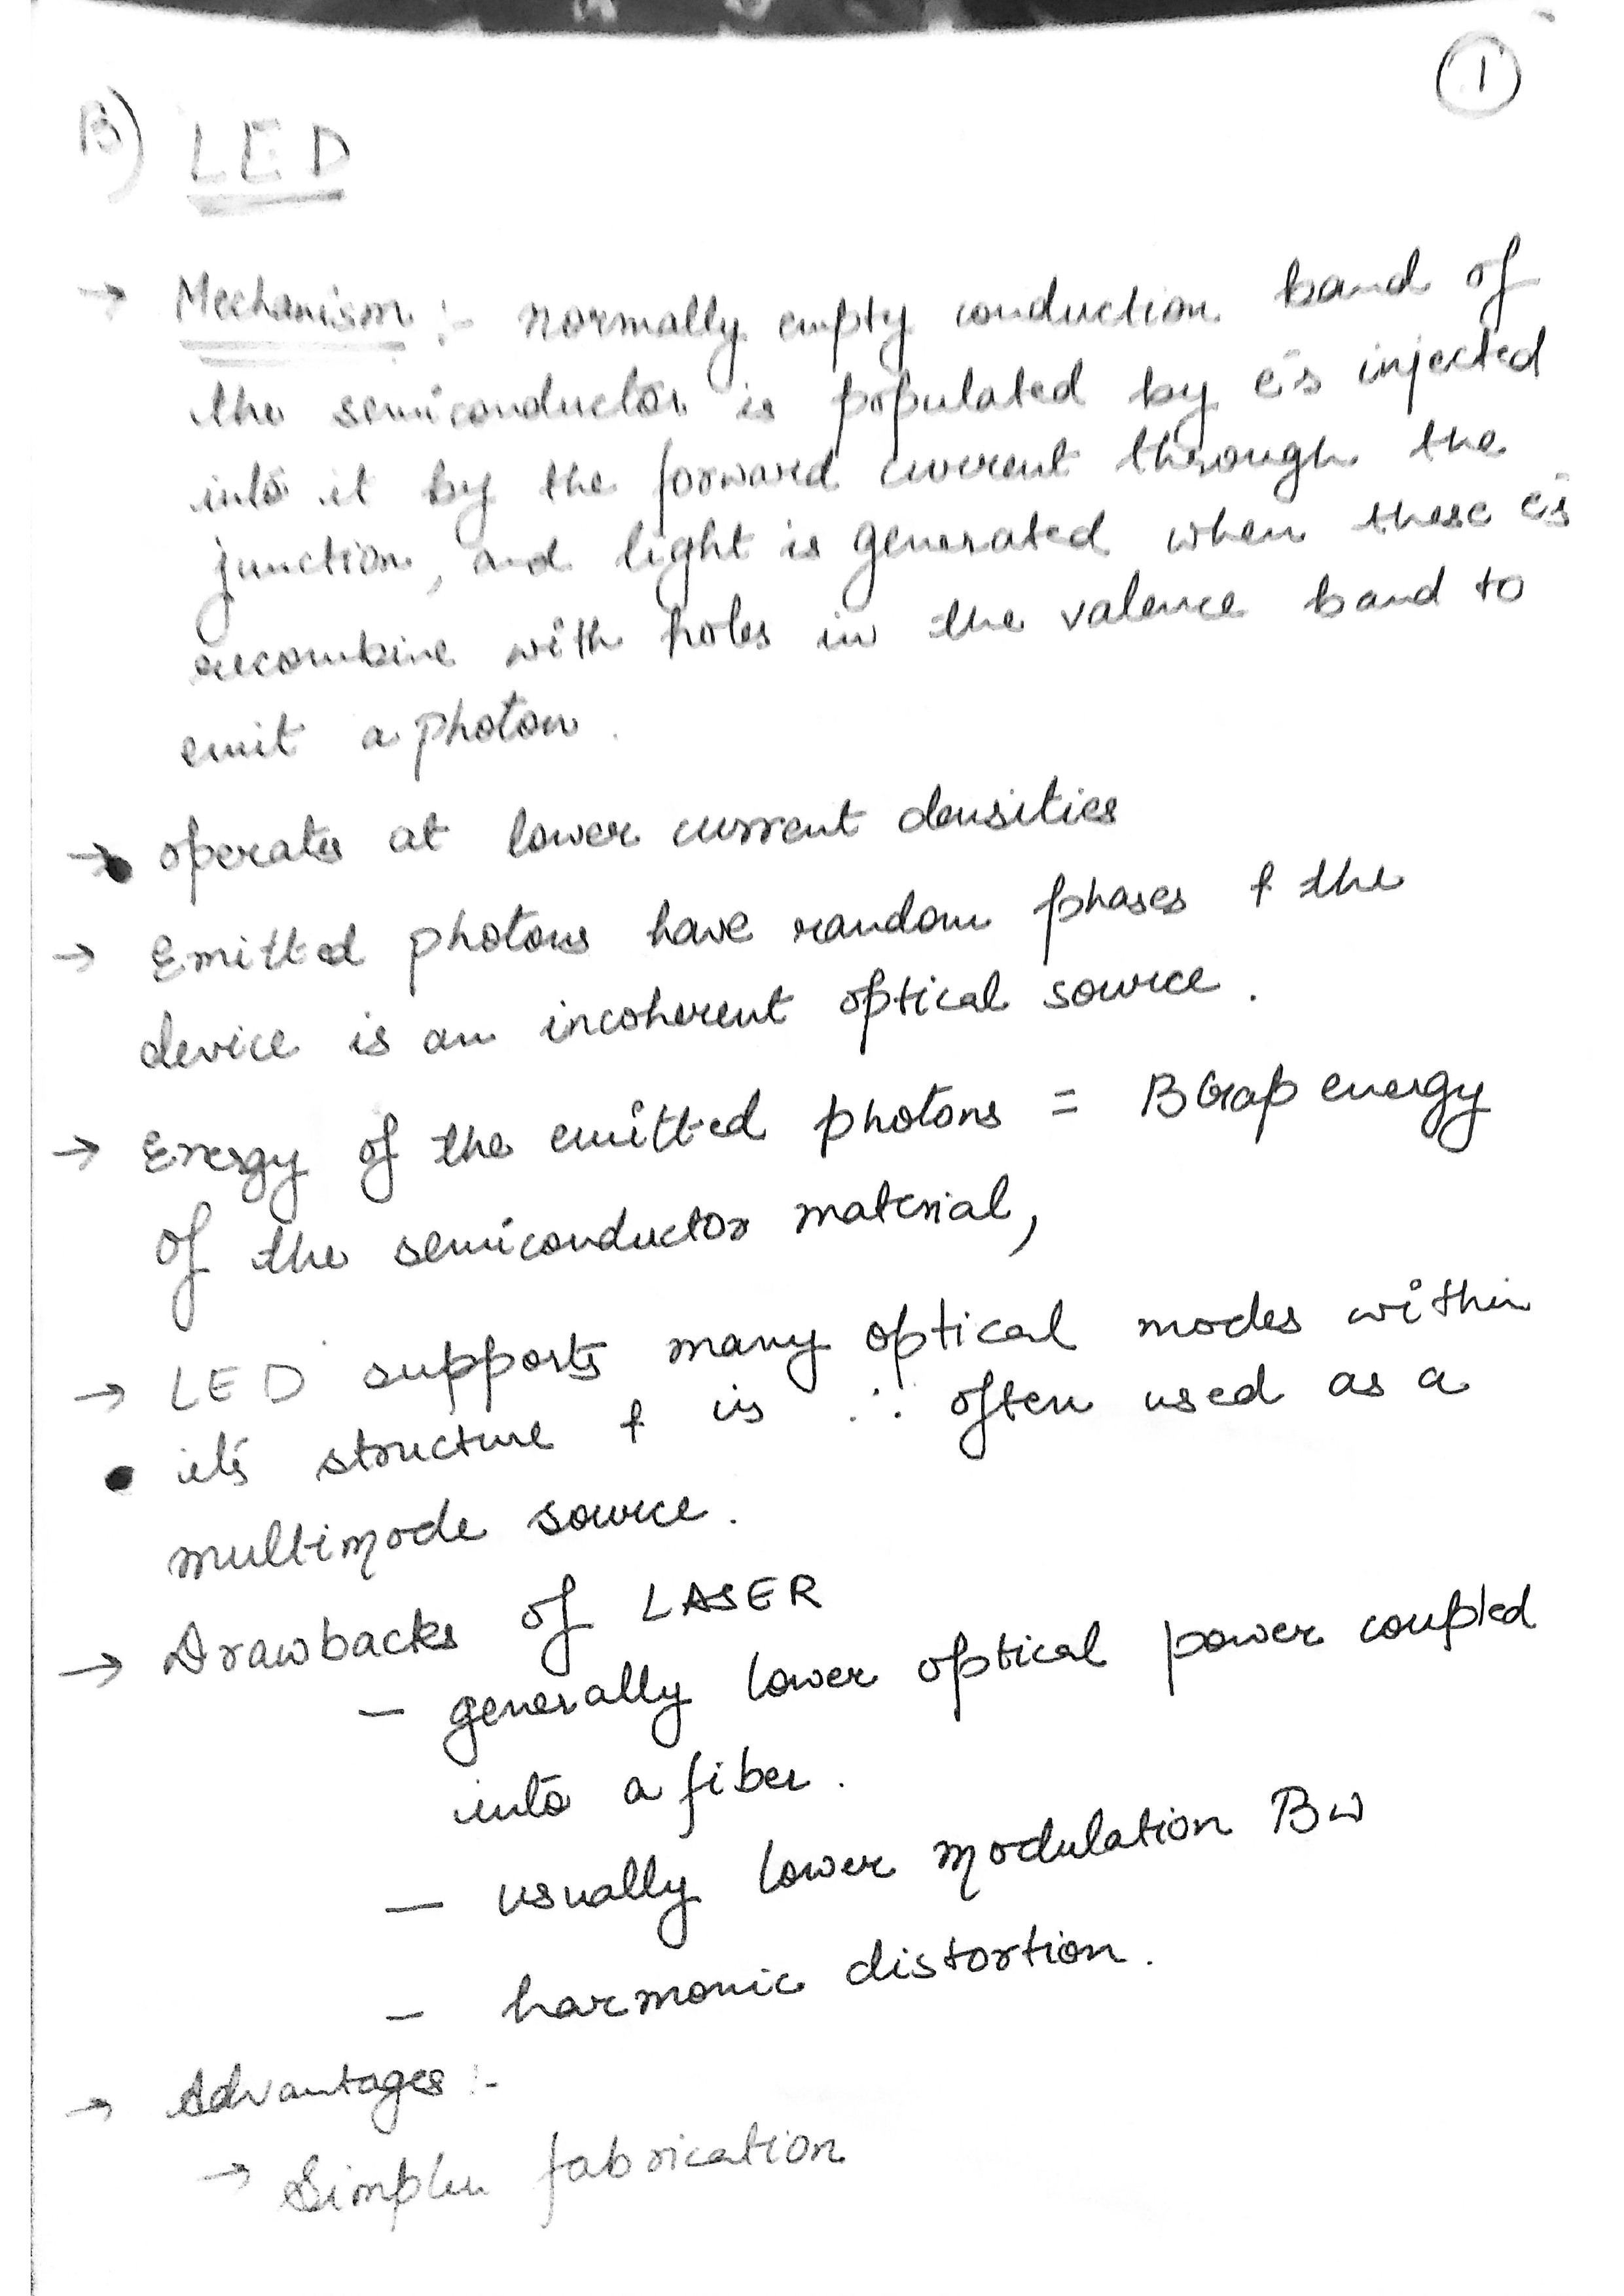 1
B) LED
→ Mechanism :- normally empty conduction band of
the semiconductor is populated by e⁻s injected
into it by the forward current through the
junction, and light is generated when these e⁻s
recombine with holes in the valence band to
emit a photon.
→ operates at lower current densities
→ Emitted photons have random phases & the
device is an incoherent optical source.
→ Energy of the emitted photons = BGap energy
of the semiconductor material,
→ LED supports many optical modes within
it's structure & is ∴ often used as a
multimode source.
→ Drawbacks of LASER
— generally lower optical power coupled
into a fiber.
— usually lower modulation BW
— harmonic distortion.
→ Advantages :-
→ Simpler fabrication